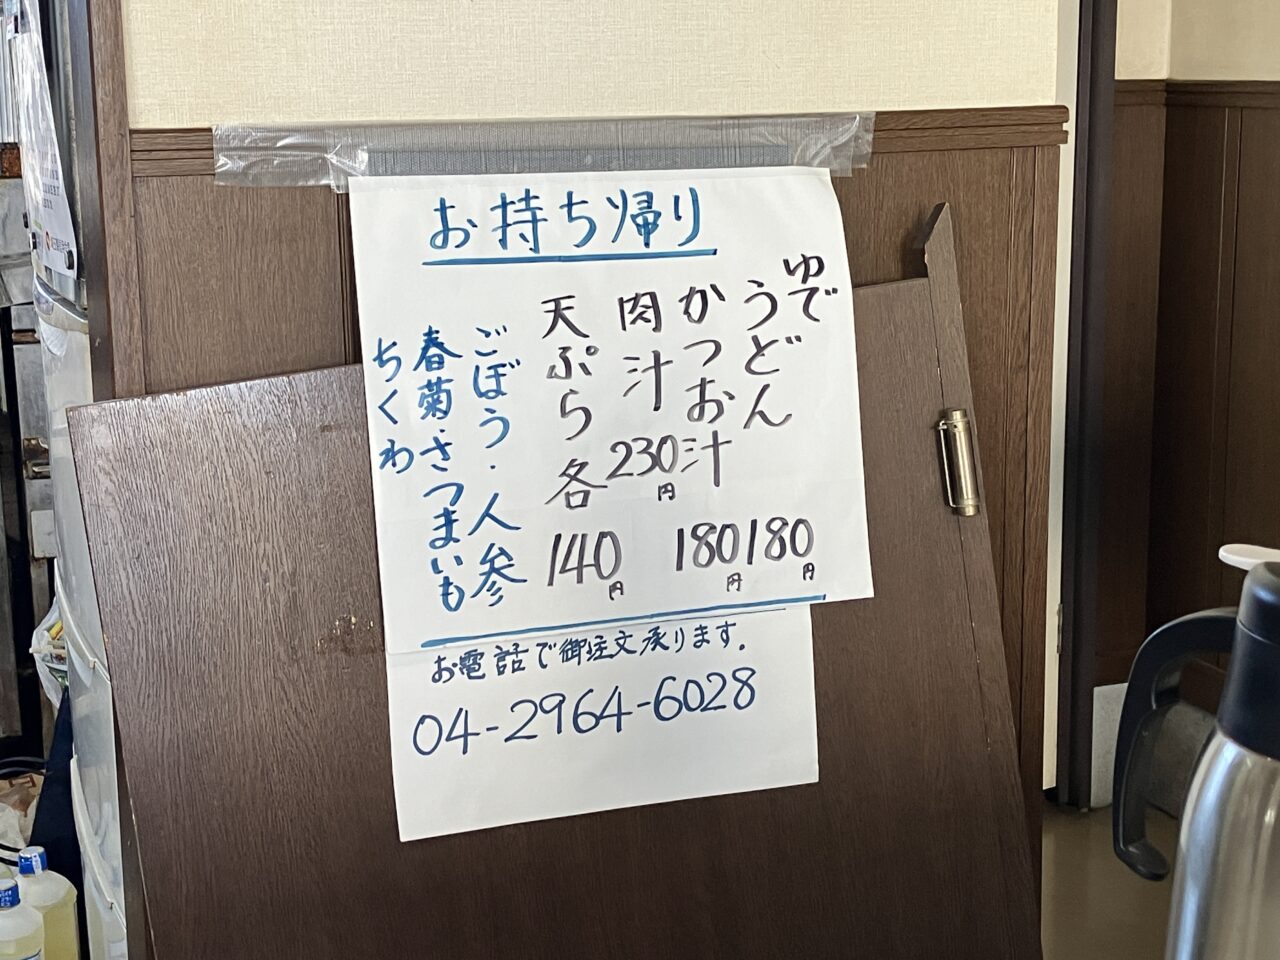 お持ち帰り
ゆで
うどん
180円
かつお汁
180円
肉汁
230円
天ぷら各
140円
ごぼう・人参
春菊・さつまいも
ちくわ
お電話で御注文承ります。
04-2964-6028